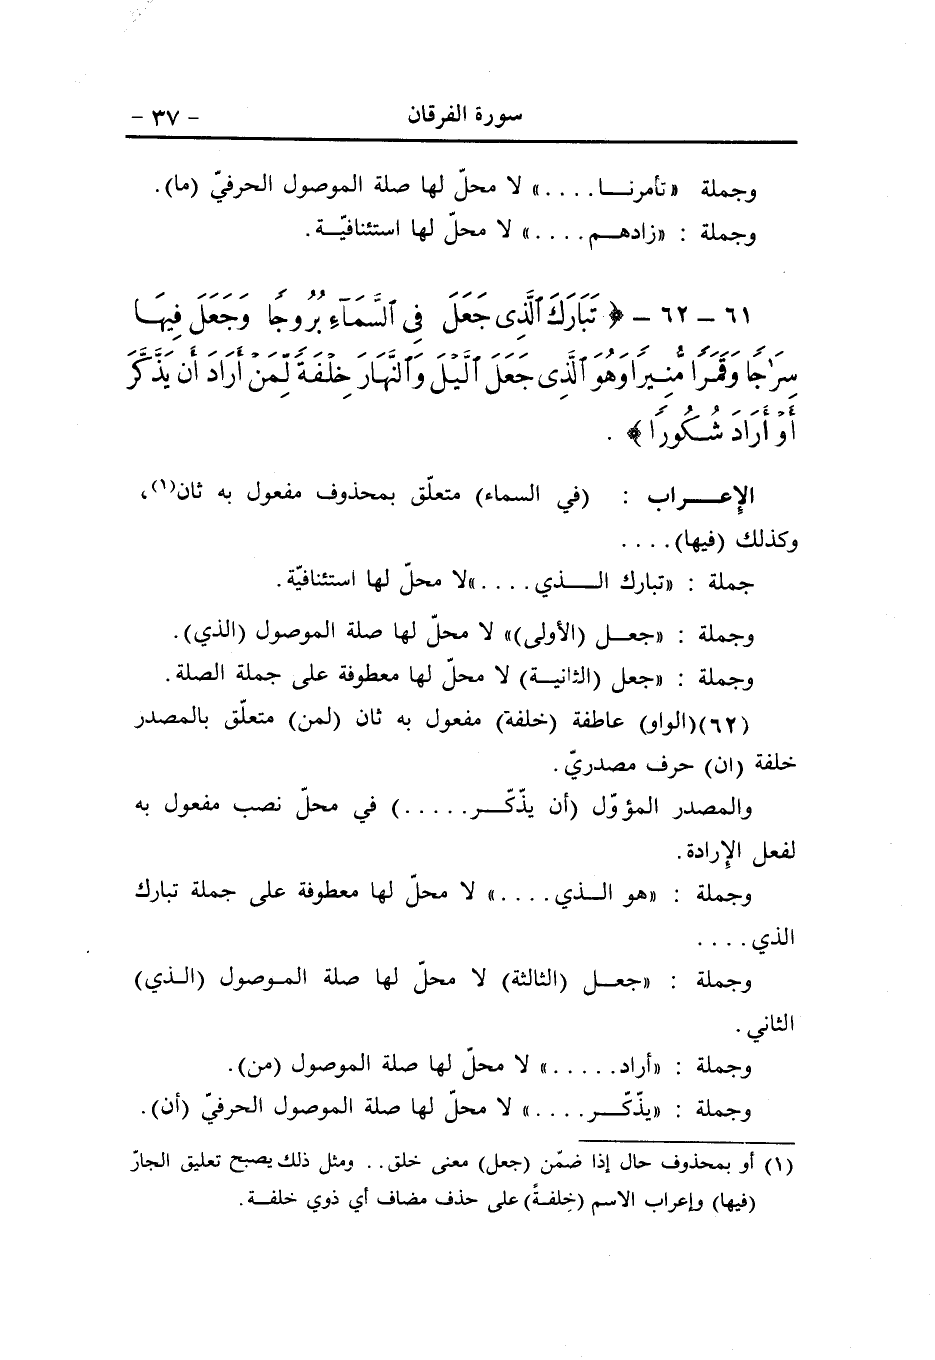 سورة الفرقان - ٣٧ -
وجملة «تأمرنـا....» لا محلّ لها صلة الموصول الحرفيّ (ما).
وجملة : «زادهـم....» لا محلّ لها استئنافيّـة.
٦١ - ٦٢ - ﴿ تَبَارَكَ ٱلَّذِى جَعَلَ فِى ٱلسَّمَآءِ بُرُوجًا وَجَعَلَ فِيهَا
سِرَٰجًا وَقَمَرًا مُّنِيرًا وَهُوَ ٱلَّذِى جَعَلَ ٱلَّيْلَ وَٱلنَّهَارَ خِلْفَةً لِّمَنْ أَرَادَ أَن يَذَّكَّرَ
أَوْ أَرَادَ شُكُورًا ﴾ .
الإعـــراب : (في السماء) متعلّق بمحذوف مفعول به ثان(١)،
وكذلك (فيها)....
جملة : «تبارك الـــذي....»لا محلّ لها استئنافيّة.
وجملة : «جعـل (الأولى)» لا محلّ لها صلة الموصول (الذي).
وجملة : «جعل (الثانيـة) لا محلّ لها معطوفة على جملة الصلة.
(٦٢)(الواو) عاطفة (خلفة) مفعول به ثان (لمن) متعلّق بالمصدر
خلفة (ان) حرف مصدريّ.
والمصدر المؤوّل (أن يذّكّـــر.....) في محلّ نصب مفعول به
لفعل الإرادة.
وجملة : «هو الـذي....» لا محلّ لها معطوفة على جملة تبارك
الذي....
وجملة : «جعـل (الثالثة) لا محلّ لها صلة المـوصول (الـذي)
الثاني.
وجملة : «أراد.....» لا محلّ لها صلة الموصول (من).
وجملة : «يذّكّـــر....» لا محلّ لها صلة الموصول الحرفيّ (أن).
(١) أو بمحذوف حال إذا ضمّن (جعل) معنى خلق.. ومثل ذلك يصبح تعليق الجارّ
(فيها) وإعراب الاسم (خِلفةً) على حذف مضاف أي ذوي خلفـة.